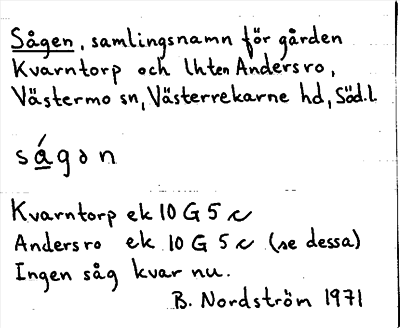 Sågen, samlingsnamn för gården
Kvarntorp och lhten Andersro,
Västermo sn, Västerrekarne hd, Söd.l.
ságən
Kvarntorp ek 10 G 5 c
Andersro ek 10 G 5 c (se dessa)
Ingen såg kvar nu.
B. Nordström 1971